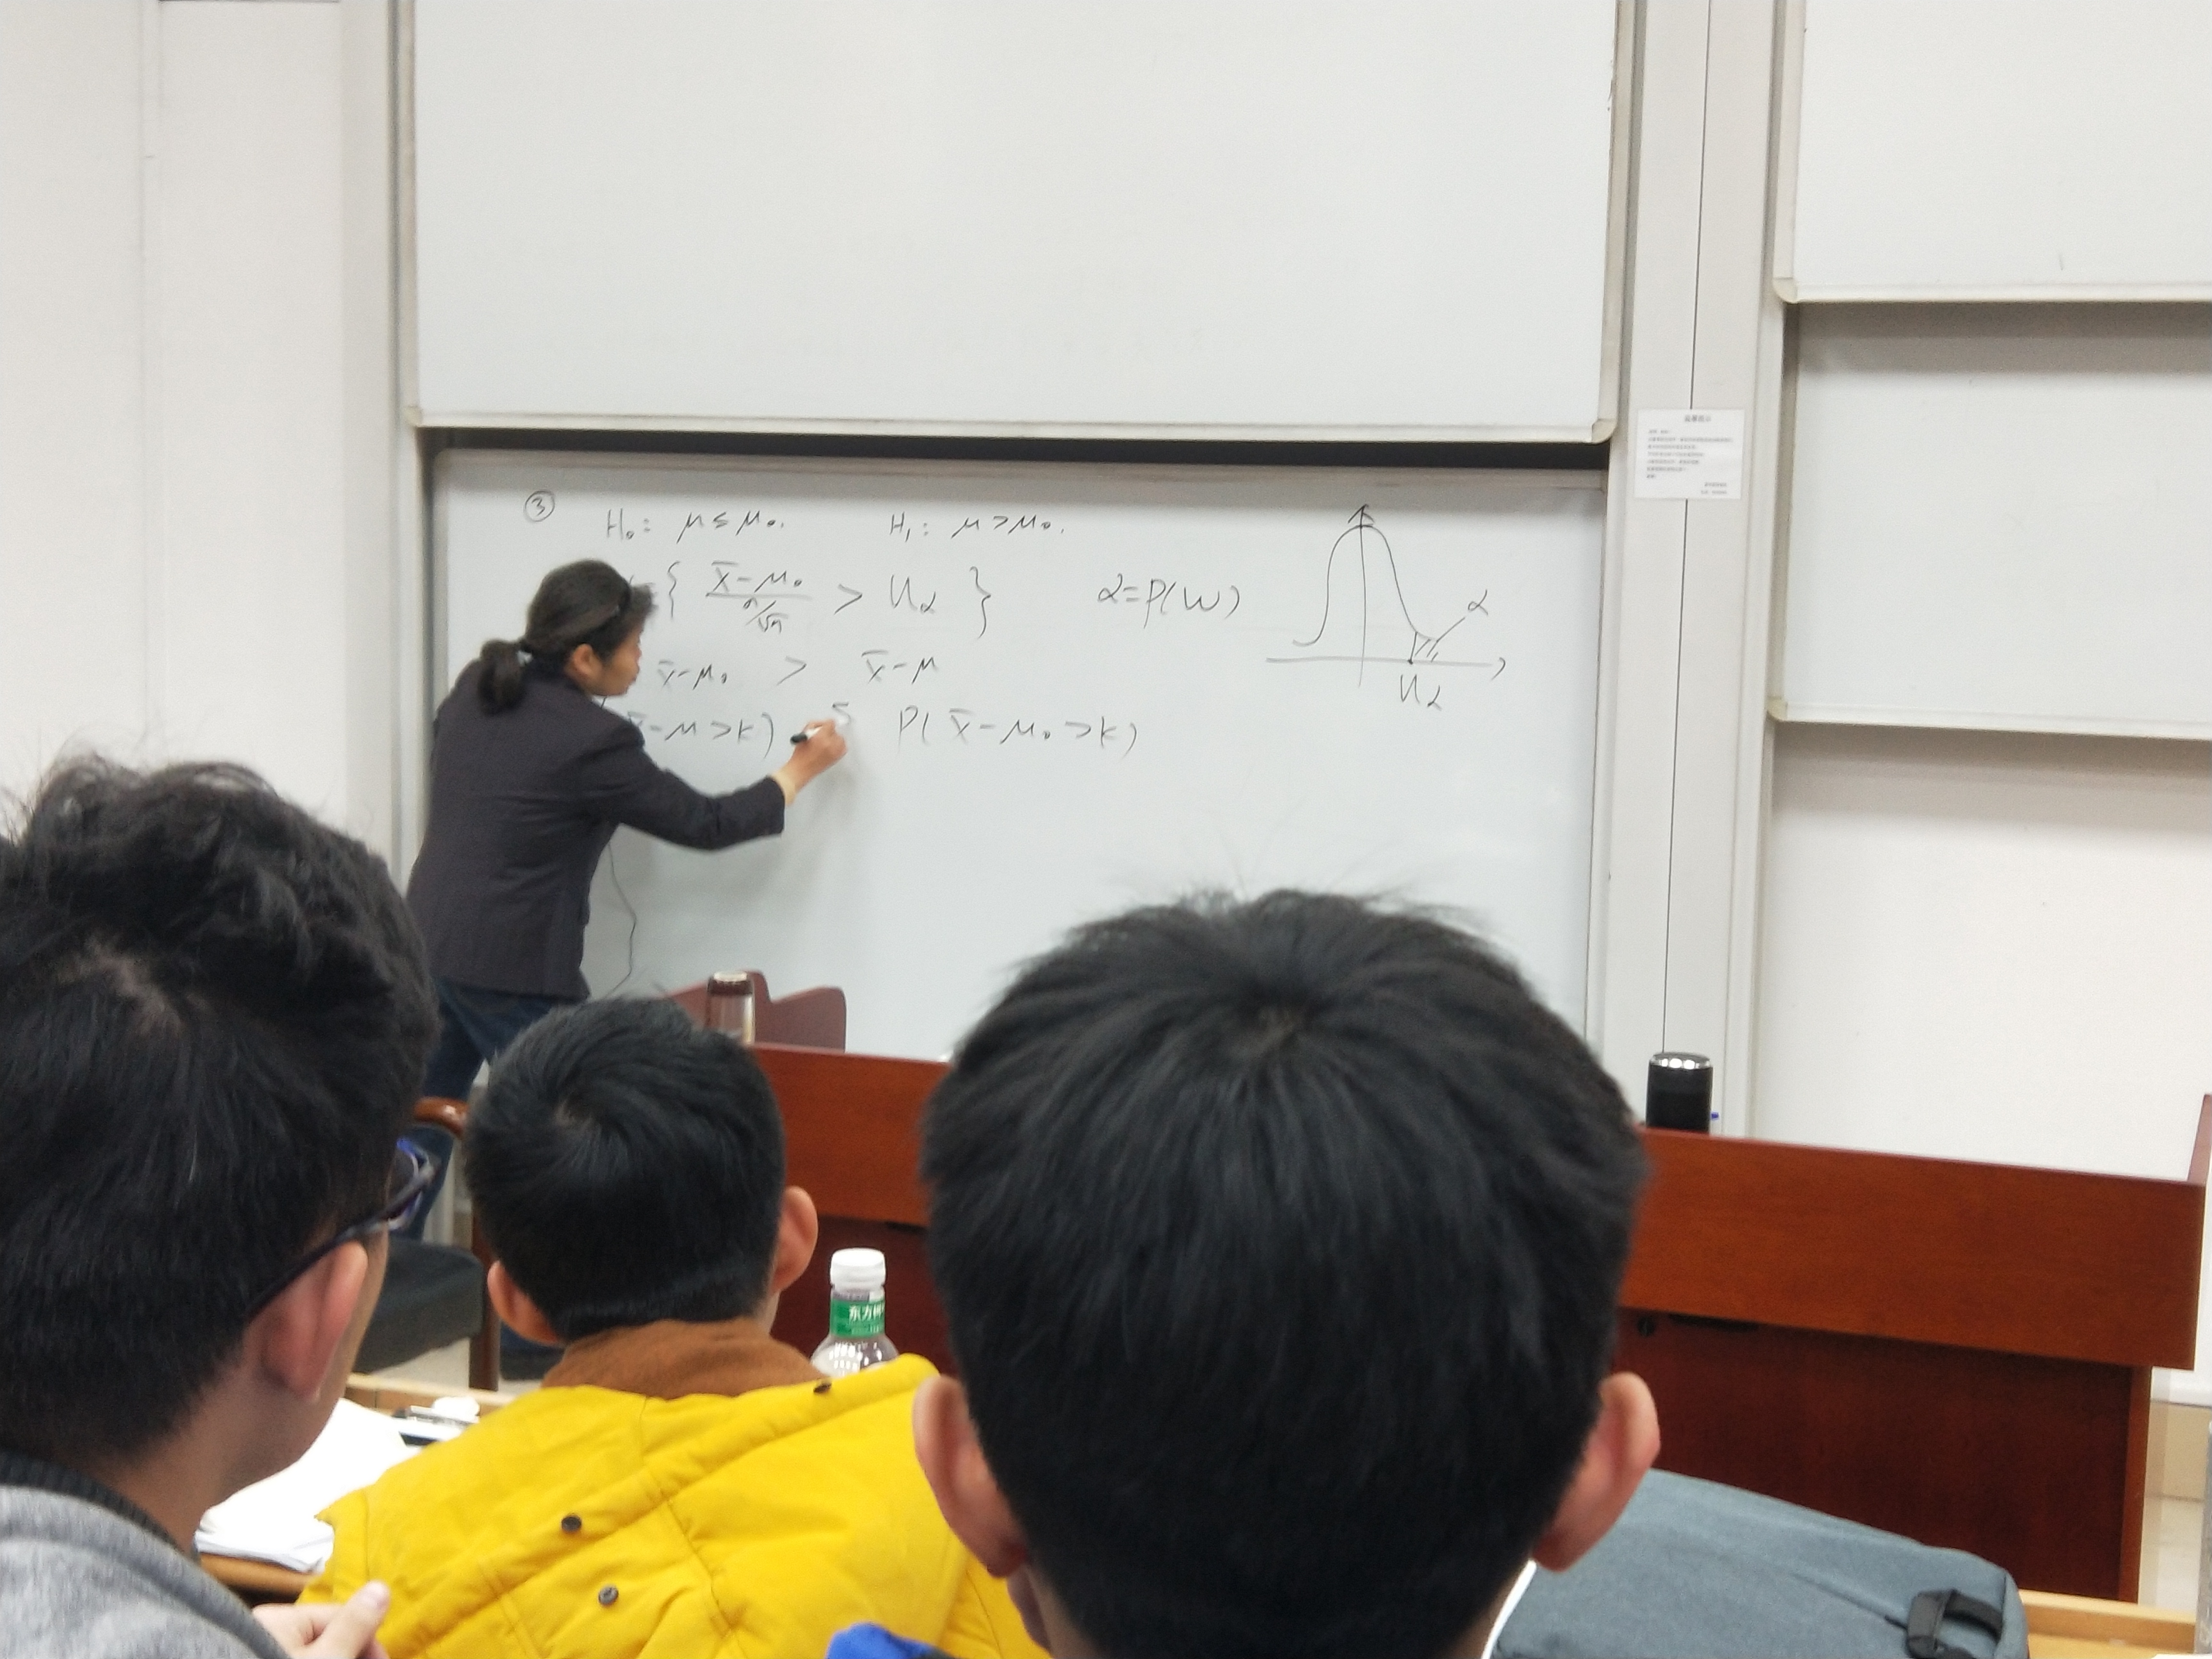 ③ H₀: μ≤μ₀. H₁: μ>μ₀.
={ (x̄-μ₀)/(σ/√n) > Uα } α=P(W) α
x̄-μ₀ > x̄-μ Uα
x̄-μ>k) ≤ P(x̄-μ₀>k)
东方树